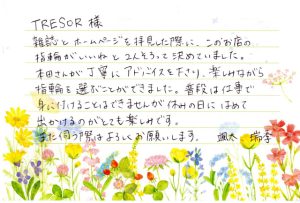 TRESOR 様
雑誌とホームページを拝見した際に、このお店の
指輪がいいねと2人そろって決めていました。
本田さんが丁寧にアドバイスを下さり、楽しみながら
指輪を選ぶことができました。普段は仕事で
身に付けることはできませんが休みの日にはめて
出かけるのがとても楽しみです。
また伺う際はよろしくお願いします。 颯太 瑞季